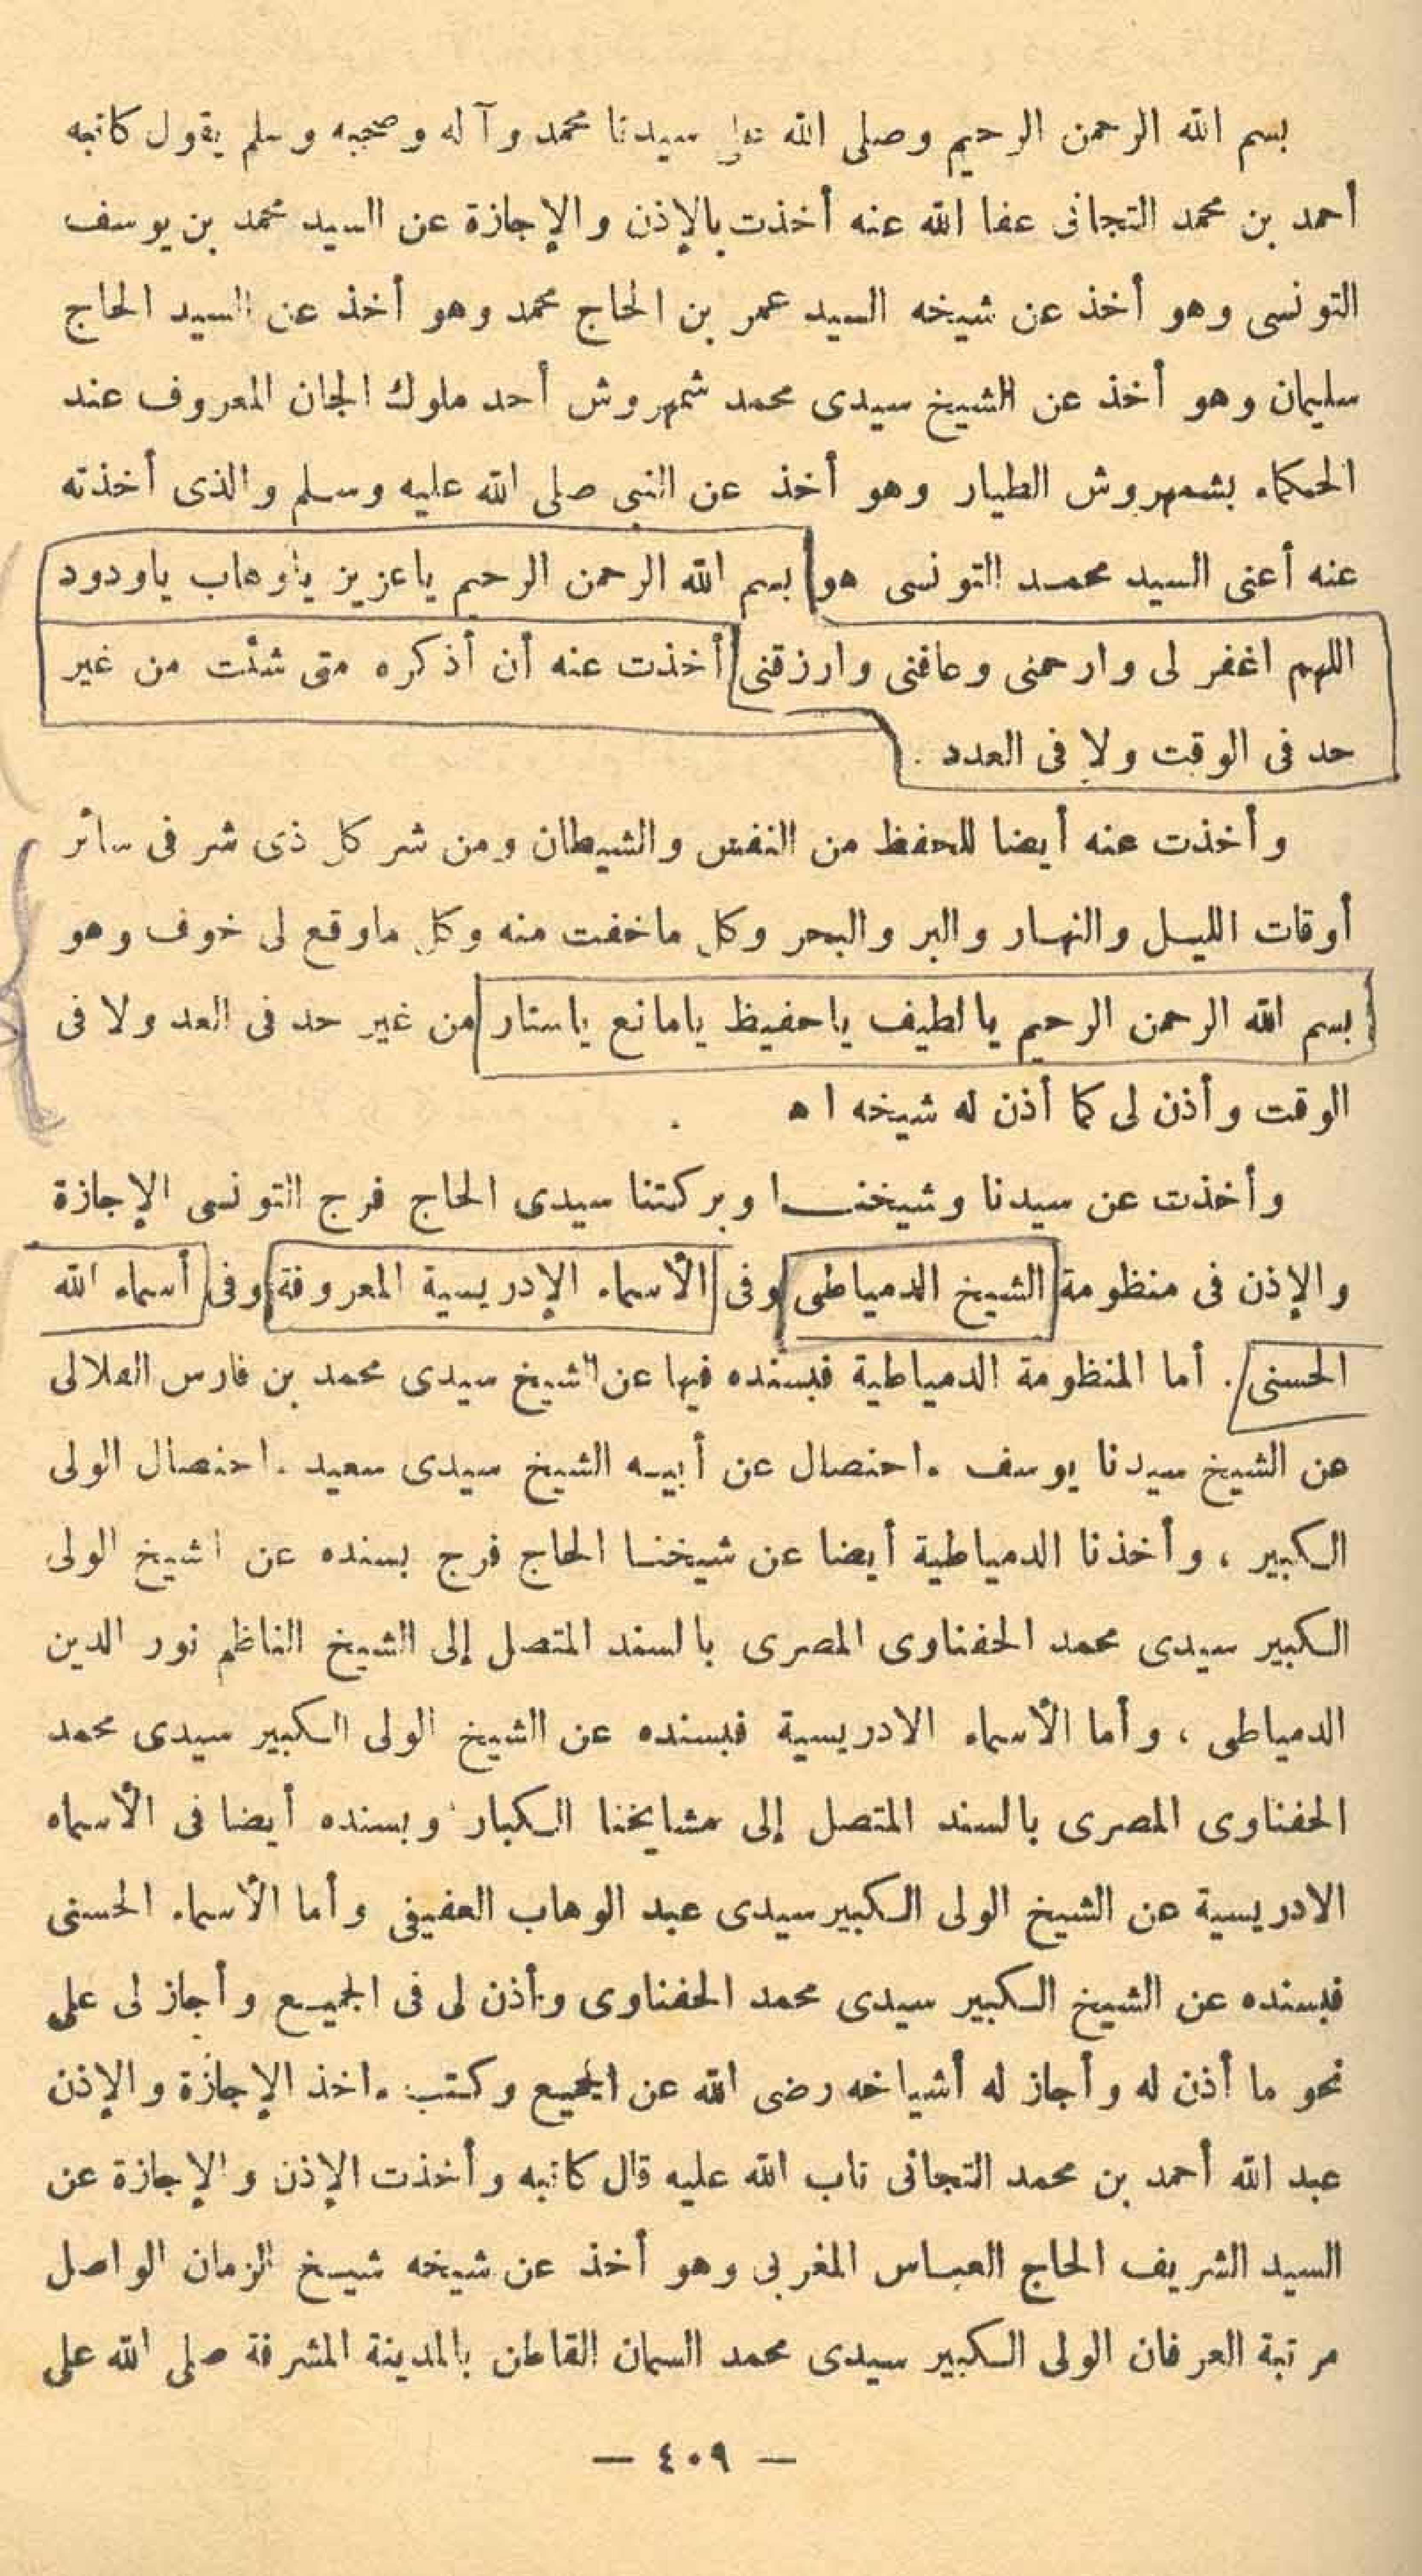 بسم الله الرحمن الرحيم وصلى الله على سيدنا محمد وآله وصحبه وسلم يقول كاتبه
أحمد بن محمد التجانى عفا الله عنه أخذت بالإذن والإجازة عن السيد محمد بن يوسف
التونسى وهو أخذ عن شيخه السيد عمر بن الحاج محمد وهو أخذ عن السيد الحاج
سليمان وهو أخذ عن الشيخ سيدى محمد شمهروش أحد ملوك الجان المعروف عند
الحكماء بشمهروش الطيار وهو أخذ عن النبى صلى الله عليه وسلم والذى أخذته
عنه أعنى السيد محمد التونسى هو بسم الله الرحمن الرحيم ياعزيز ياوهاب ياودود
اللهم اغفر لى وارحمنى وعافنى وارزقنى أخذت عنه أن أذكره متى شئت من غير
حد فى الوقت ولا فى العدد .
وأخذت عنه أيضا للحفظ من النفس والشيطان ومن شر كل ذى شر فى سائر
أوقات الليل والنهار والبر والبحر وكل ماخفت منه وكل ماوقع لى خوف وهو
بسم الله الرحمن الرحيم يالطيف ياحفيظ يامانع ياستار من غير حد فى العد ولا فى
الوقت وأذن لى كما أذن له شيخه ا ه .
وأخذت عن سيدنا وشيخنا وبركتنا سيدى الحاج فرج التونسى الإجازة
والإذن فى منظومة الشيخ الدمياطى وفى الأسماء الإدريسية المعروفة وفى أسماء الله
الحسنى . أما المنظومة الدمياطية فبسنده فيها عن الشيخ سيدى محمد بن فارس العلالى
عن الشيخ سيدنا يوسف احنصال عن أبيه الشيخ سيدى سعيد احنصال الولى
الكبير ، وأخذنا الدمياطية أيضا عن شيخنا الحاج فرج بسنده عن الشيخ الولى
الكبير سيدى محمد الحفناوى المصرى بالسند المتصل إلى الشيخ الناظم نور الدين
الدمياطى ، وأما الأسماء الادريسية فبسنده عن الشيخ الولى الكبير سيدى محمد
الحفناوى المصرى بالسند المتصل إلى مشايخنا الكبار وبسنده أيضا فى الأسماء
الادريسية عن الشيخ الولى الكبير سيدى عبد الوهاب العفيفى وأما الأسماء الحسنى
فبسنده عن الشيخ الكبير سيدى محمد الحفناوى وأذن لى فى الجميع وأجاز لى على
نحو ما أذن له وأجاز له أشياخه رضى الله عن الجميع وكتب ماخذ الإجازة والإذن
عبد الله أحمد بن محمد التجانى تاب الله عليه قال كاتبه وأخذت الإذن والإجازة عن
السيد الشريف الحاج العباس المغربى وهو أخذ عن شيخه شيخ الزمان الواصل
مرتبة العرفان الولى الكبير سيدى محمد السمان القاطن بالمدينة المشرفة صلى الله على
— ٤٠٩ —